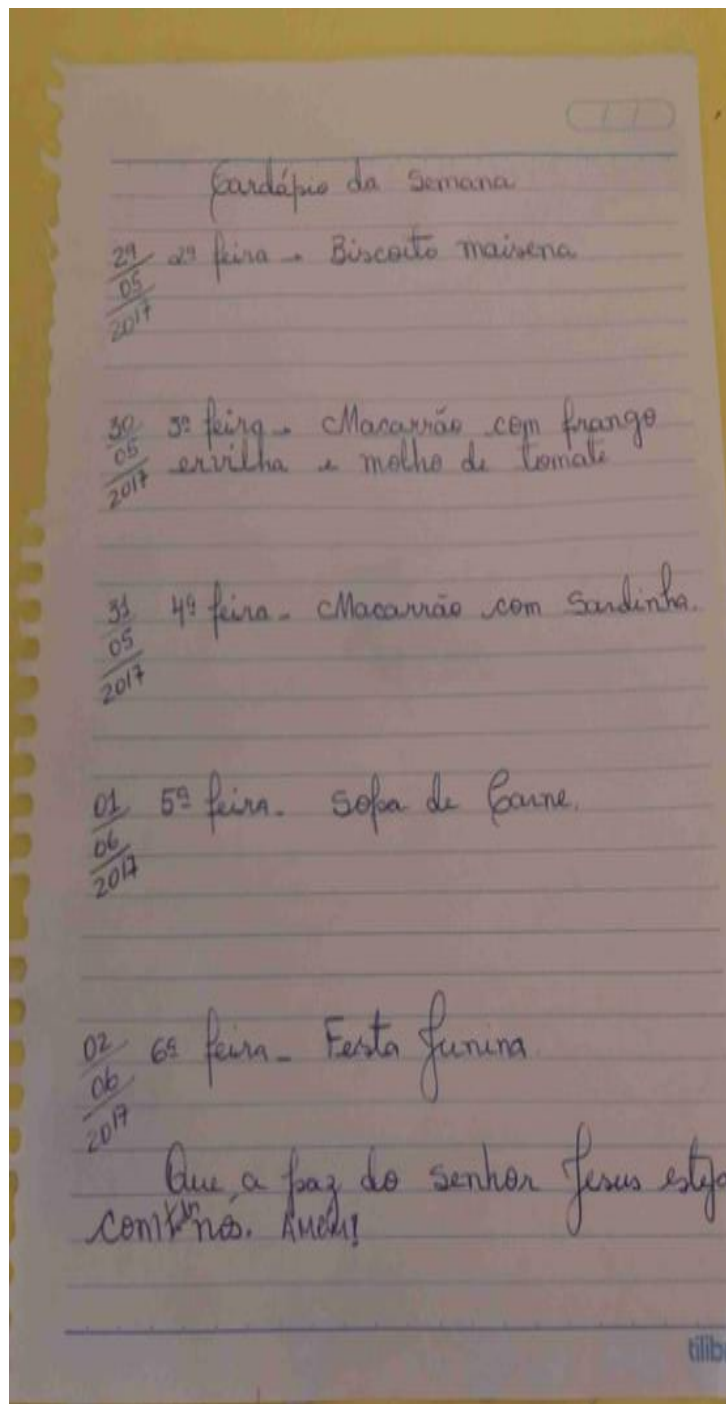 Cardápio da Semana
29/05/2017 2ª feira - Biscoito maisena
30/05/2017 3ª feira - Macarrão com frango
ervilha e molho de tomate
31/05/2017 4ª feira - Macarrão com Sardinha.
01/06/2017 5ª feira - Sopa de Carne.
02/06/2017 6ª feira - Festa Junina
Que, a paz do senhor Jesus esteja
nós. Amém!
tilib